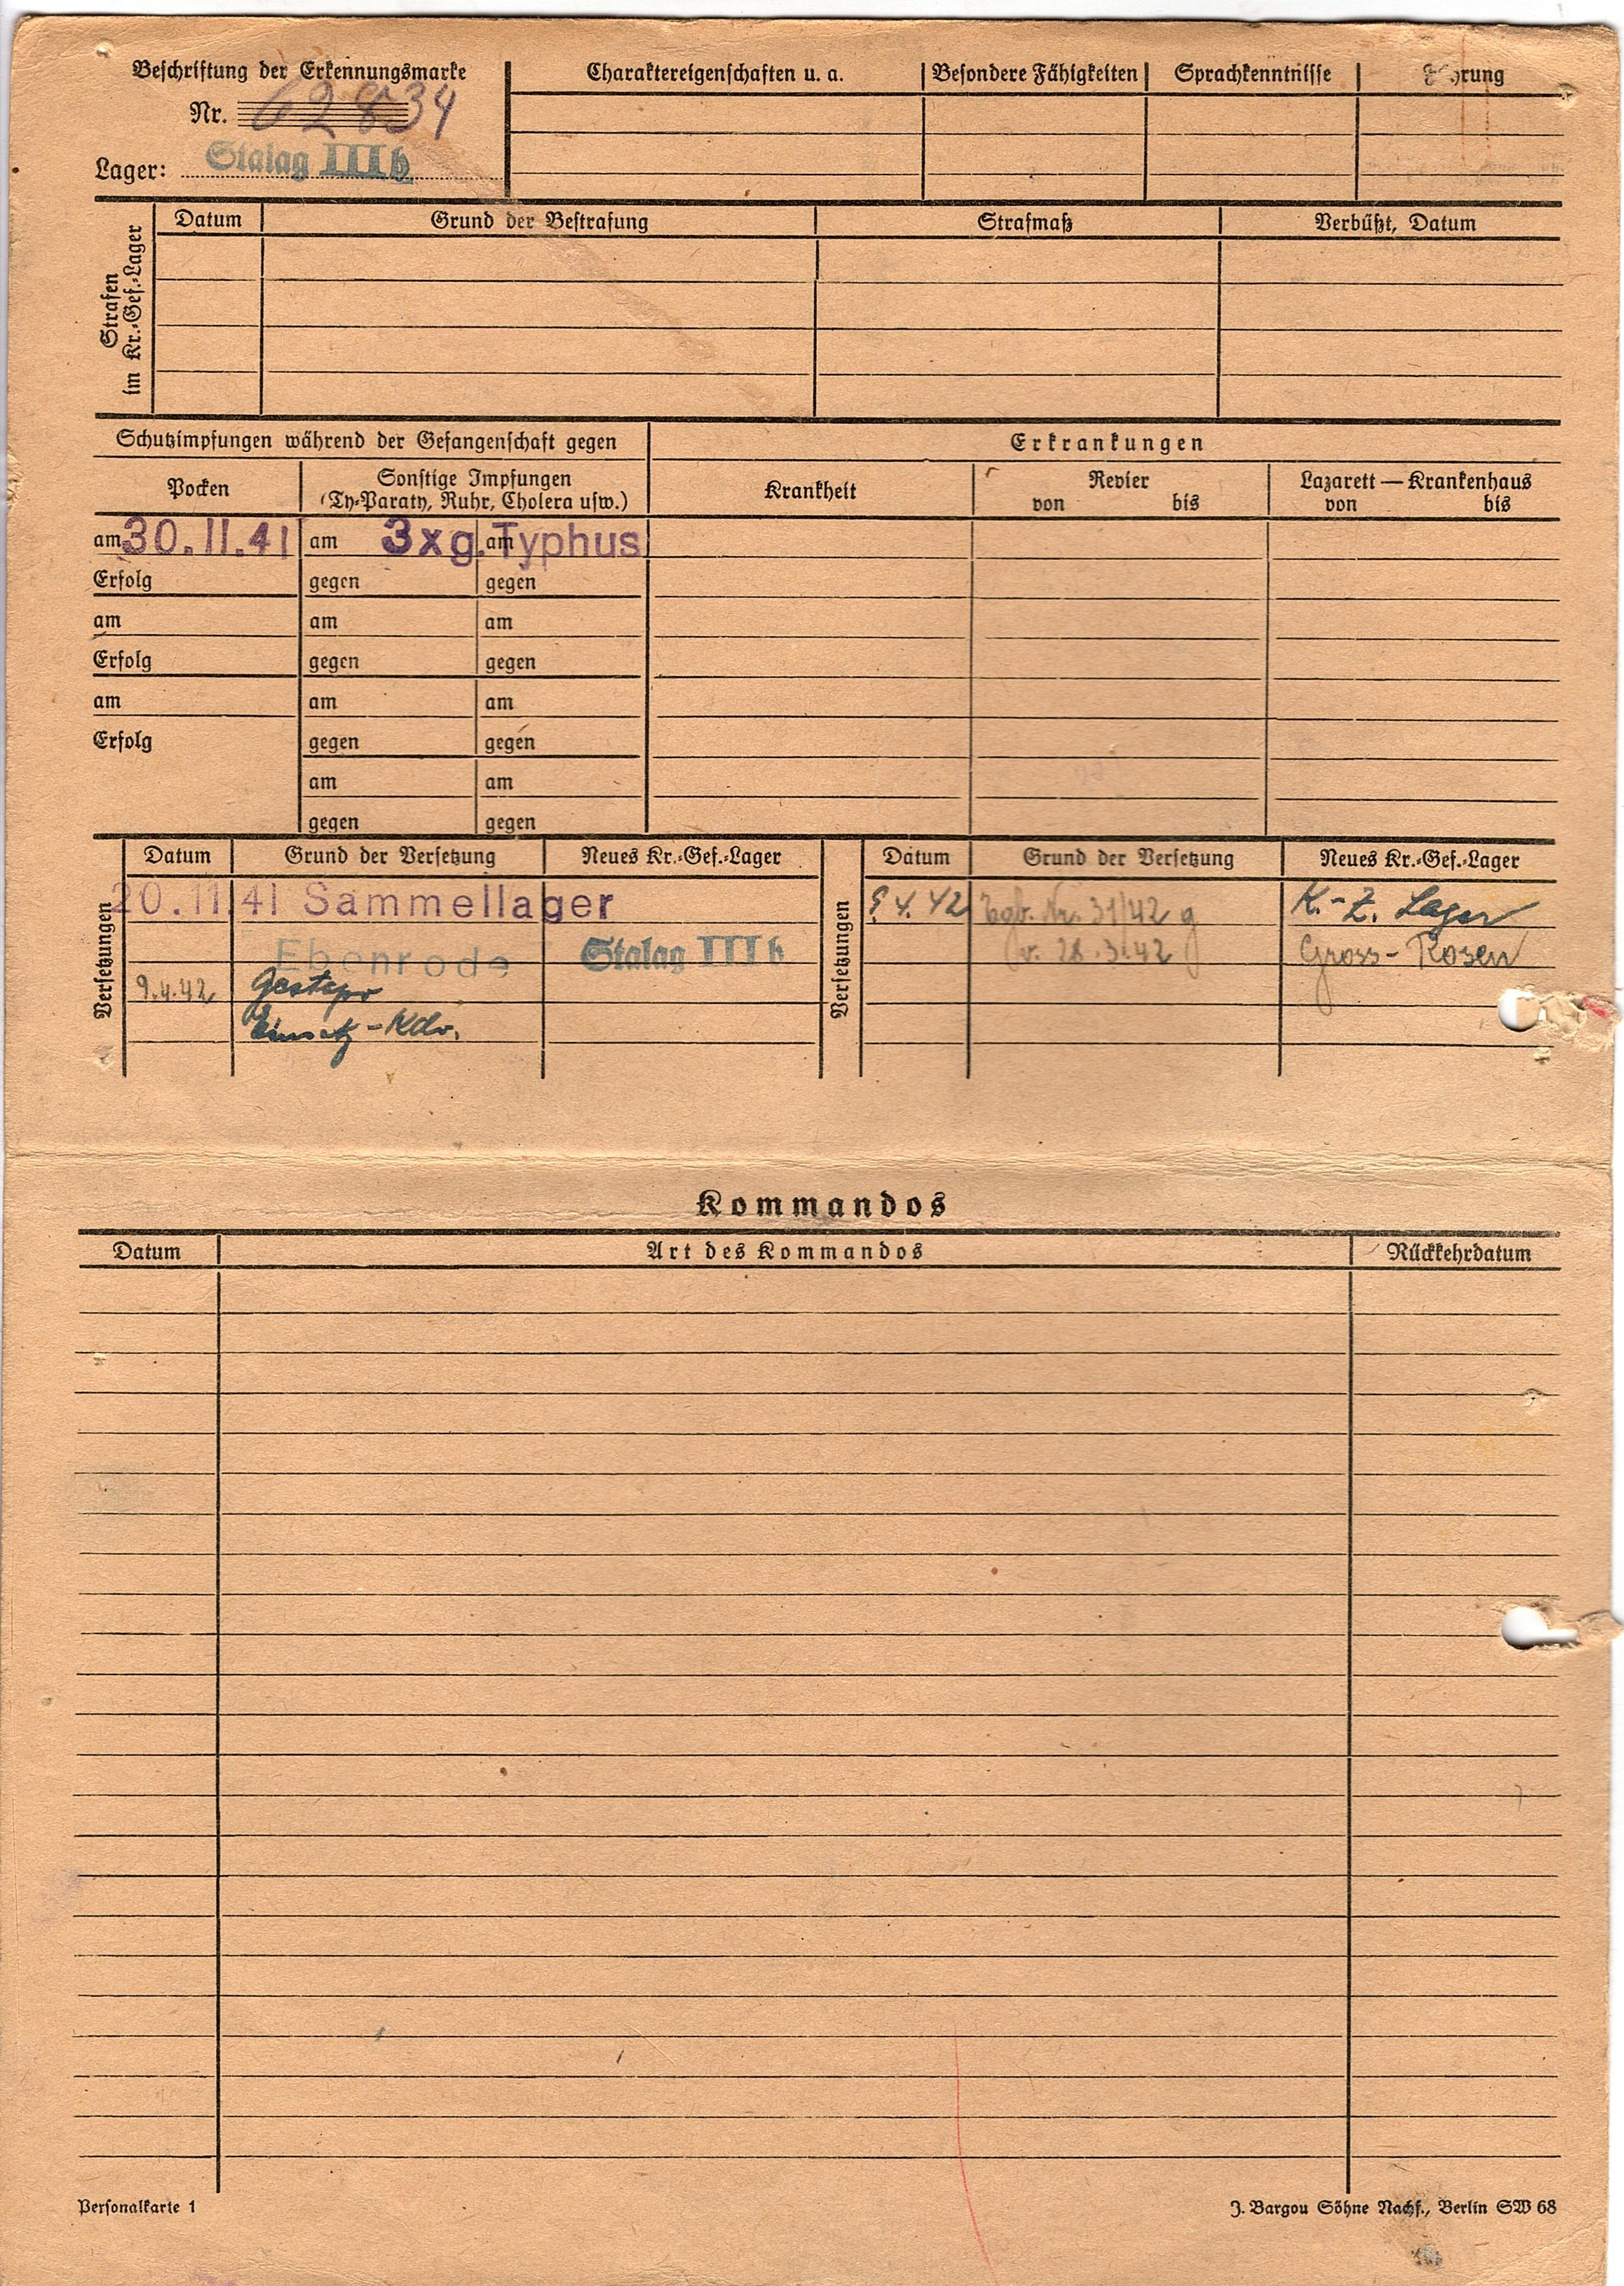 Beschriftung der Erkennungsmarke
Nr. 62834
Lager: Stalag IIIb
Charaktereigenschaften u. a. Besondere Fähigkeiten Sprachkenntnisse
Strafen im Kr.-Gef.-Lager
Datum Grund der Bestrafung Strafmaß Verbüßt, Datum
Schutzimpfungen während der Gefangenschaft gegen
Erkrankungen
Pocken
Sonstige Impfungen
(Ty-Paraty, Ruhr, Cholera usw.)
Krankheit
Revier
von bis
Lazarett — Krankenhaus
von bis
am 30.11.41 am 3xg. am Typhus
Erfolg gegen gegen
am am am
Erfolg gegen gegen
am am am
Erfolg gegen gegen
am am
gegen gegen
Versetzungen
Datum Grund der Versetzung Neues Kr.-Gef.-Lager
20.11.41 Sammellager
Ebenrode Stalag IIIb
9.4.42 Gestapo
Einsatz-Kdo.
Versetzungen
Datum Grund der Versetzung Neues Kr.-Gef.-Lager
9.4.42 Tgb. Nr. 31/42 g K.-Z. Lager
v. 28.3.42 Gross-Rosen
Kommandos
Datum Art des Kommandos Rückkehrdatum
Personalkarte 1
J. Bargou Söhne Nachf., Berlin SW 68